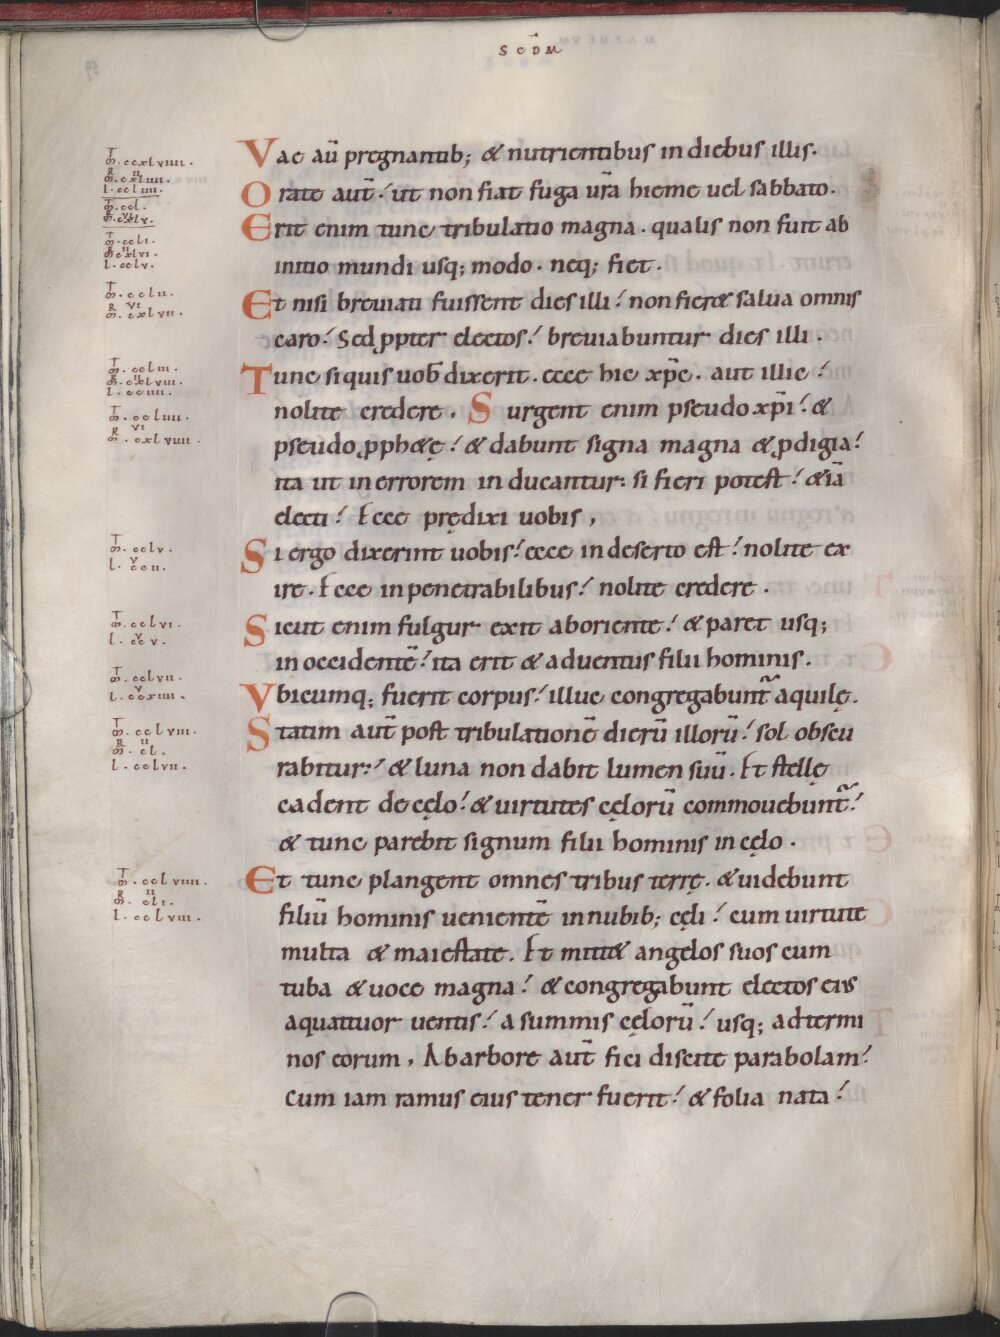 SCDM
Vae aū pregnantib; & nutrientibus in diebus illis.
Orate aut̄ ut non fiat fuga ur̄a hieme uel sabbato.
Erit enim tunc tribulatio magna. qualis non fuit ab
initio mundi usq; modo. neq; fiet.
Et nisi breuiati fuissent dies illi non fier& salua omnis
caro Sed ꝓpter electos breuiabuntur dies illi.
Tunc si quis uob̄ dixerit. ecce hic xp̄c. aut illic
nolite credere. Surgent enim pseudo xp̄i &
pseudo ꝓph&ę & dabunt signa magna & ꝓdigia
ita ut in errorem inducantur: si fieri potest &iā
electi Ecce prędixi uobis,
Si ergo dixerint uobis ecce in deserto est nolite ex
ire. Ecce in penetrabilibus nolite credere.
Sicut enim fulgur exit ab oriente & paret usq;
in occidentē ita erit & aduentus filii hominis.
Vbicumq; fuerit corpus illuc congregabunt̃ aquilę.
Statim aut̄ post tribulationē dierū illorū sol obscu
rabitur: & luna non dabit lumen suū. Et stellę
cadent de cęlo & uirtutes cęlorū commouebunt̃
& tunc parebit signum filii hominis in cęlo.
Et tunc plangent omnes tribus terrę. & uidebunt
filiū hominis uenientē in nubib; cęli cum uirtute
multa & maiestate. Et mitt& angelos suos cum
tuba & uoce magna & congregabunt electos eius
a quattuor uentis a summis cęlorū usq; ad termi
nos eorum, Ab arbore aut̄ fici discite parabolam
Cum iam ramus eius tener fuerit & folia nata